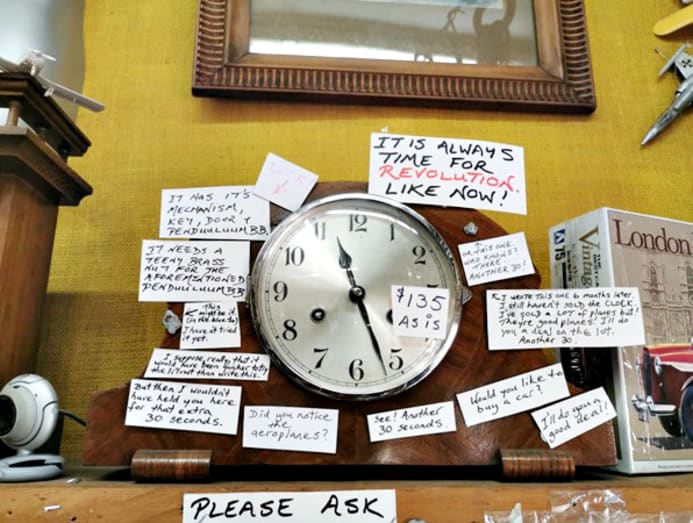 IT IS ALWAYS
TIME FOR
REVOLUTION.
LIKE NOW!
LOOK
IT HAS IT'S
MECHANISM,
KEY, DOOR &
PENDULULUM B.B.
IT NEEDS A
TEENY BRASS
NUT FOR THE
AFOREMENTIONED
PENDULULUM B.B
This
might be it.
(in the blue tac)
I have it tried
it yet.
I suppose, really, that it
would have been quicker to try
the li'l nut than write this.
But then I wouldn't
have held you here
for that extra
30 seconds.
Did you notice
the
aeroplanes?
See! Another
30 seconds.
Would you like to
buy a car?
I'll do you a
good deal!
I WROTE THIS ONE 6 MONTHS later.
I still haven't SOLD the CLOCK.
I'VE SOLD A LOT of planes but!
They're good planes! I'll do
you a deal on the lot.
Another 30.
OR THIS ONE.
WHO KNOWS?
THERE..
ANOTHER 30!
$135
AS IS
12
11
2
10
9
8
7
6
5
London
Vintage
PLEASE ASK